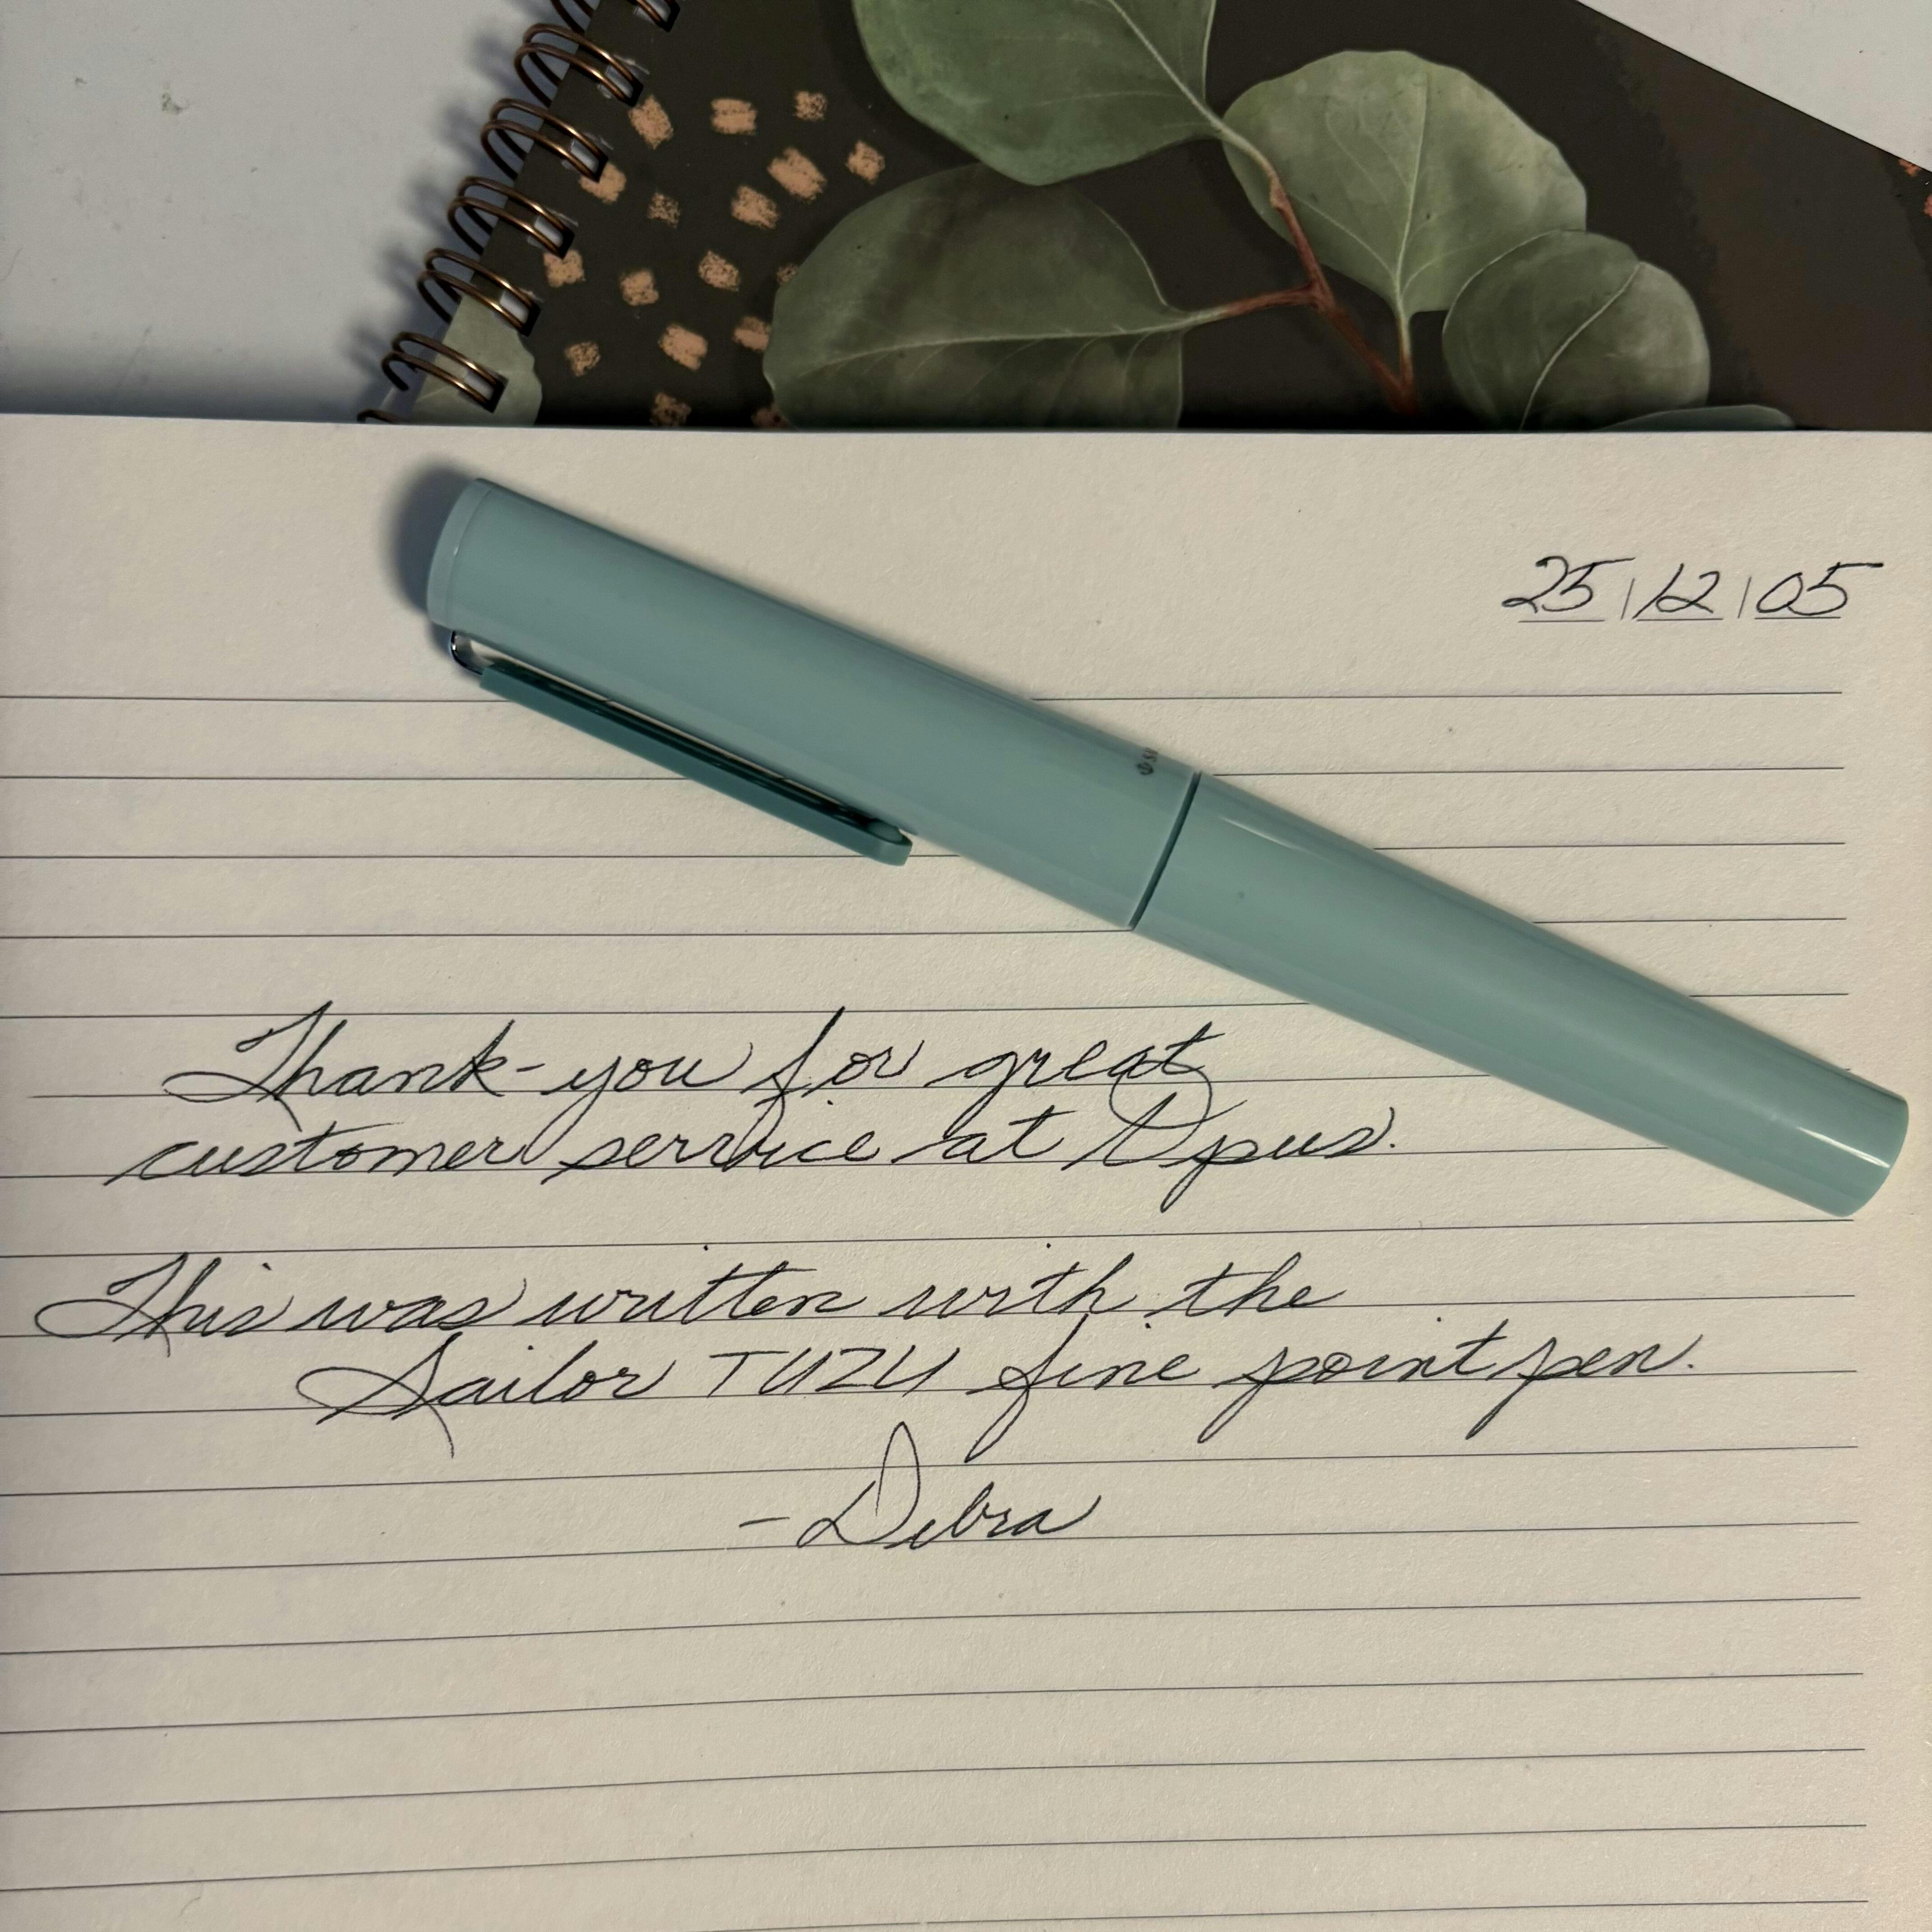 25/12/05
Thank-you for great
customer service at Opus.
This was written with the
Sailor TUZU fine point pen.
-Debra